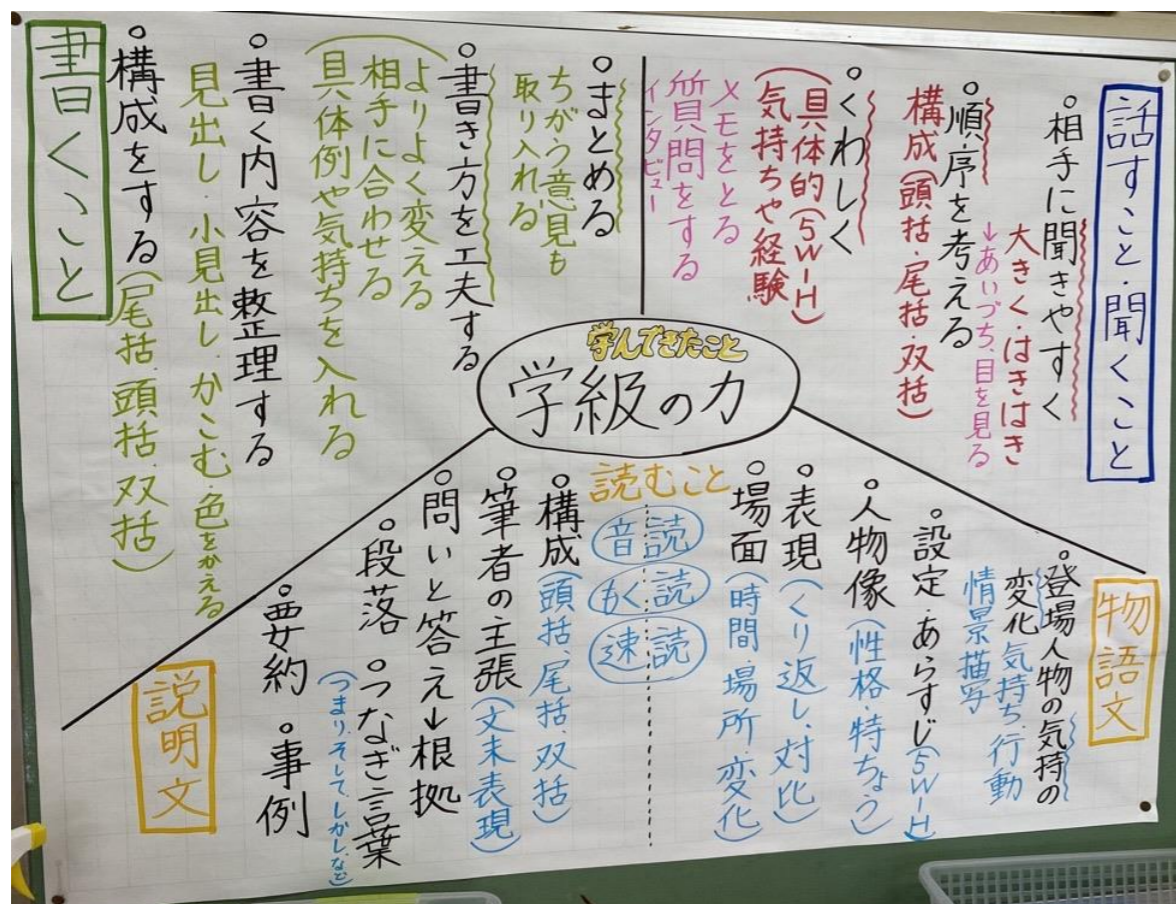 学んできたこと
学級の力
話すこと・聞くこと
○相手に聞きやすく
大きく・はきはき
↓あいづち、目を見る
○順序を考える
構成(頭括・尾括・双括)
○くわしく
(具体的(5W1H)
気持ちや経験)
メモをとる
質問をする
インタビュー
○まとめる
ちがう意見も
取り入れる
○書き方を工夫する
(よりよく変える
相手に合わせる
具体例や気持ちを入れる
○書く内容を整理する
見出し・小見出し・かこむ・色をかえる
○構成をする(尾括・頭括・双括)
書くこと
読むこと
音読
もく読
速読
物語文
○登場人物の気持の
変化 気持ち、行動
情景描写
○設定・あらすじ(5W1H)
○人物像(性格・特ちょう)
○表現(くり返し、対比)
○場面(時間・場所・変化)
○構成(頭括、尾括・双括)
○筆者の主張(文末表現)
○問いと答え↓根拠
○段落 ○つなぎ言葉
(つまり、そして、しかしなど)
○要約 ○事例
説明文